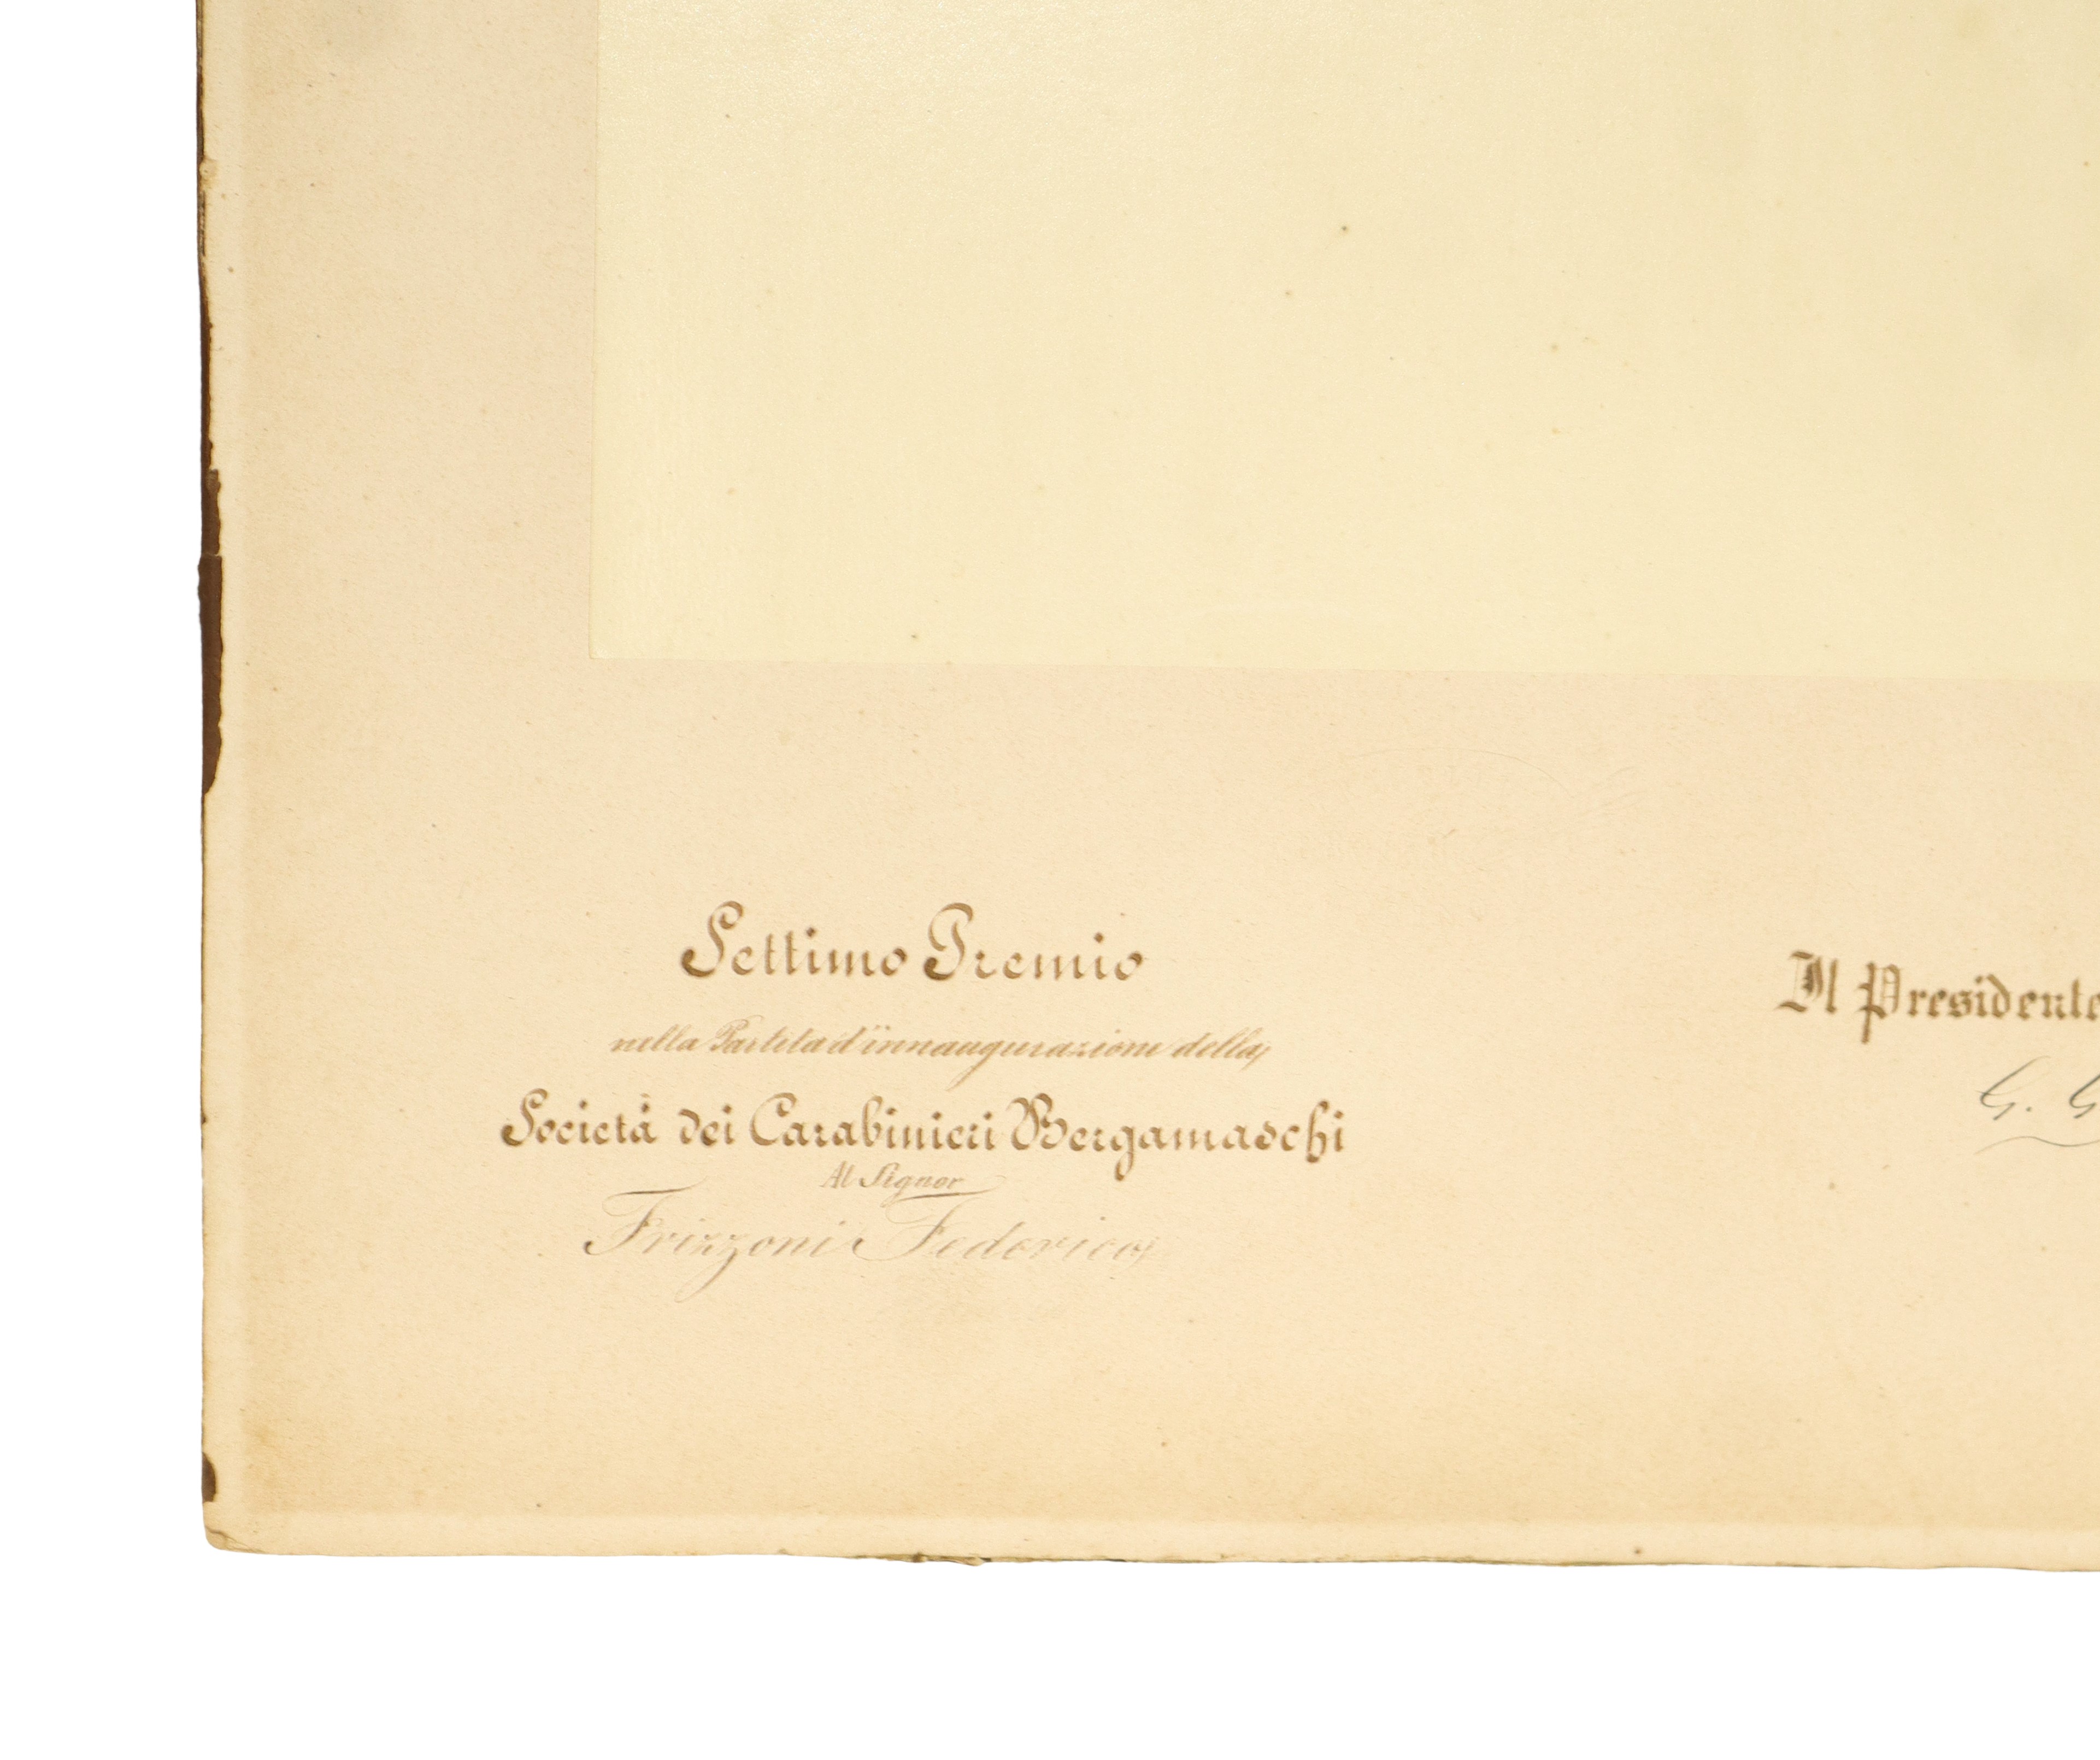 Settimo Premio
nella Partita d'innaugurazione della
Società dei Carabinieri Bergamaschi
Al Signor
Frizzoni Federico
Il Presidente
G. G